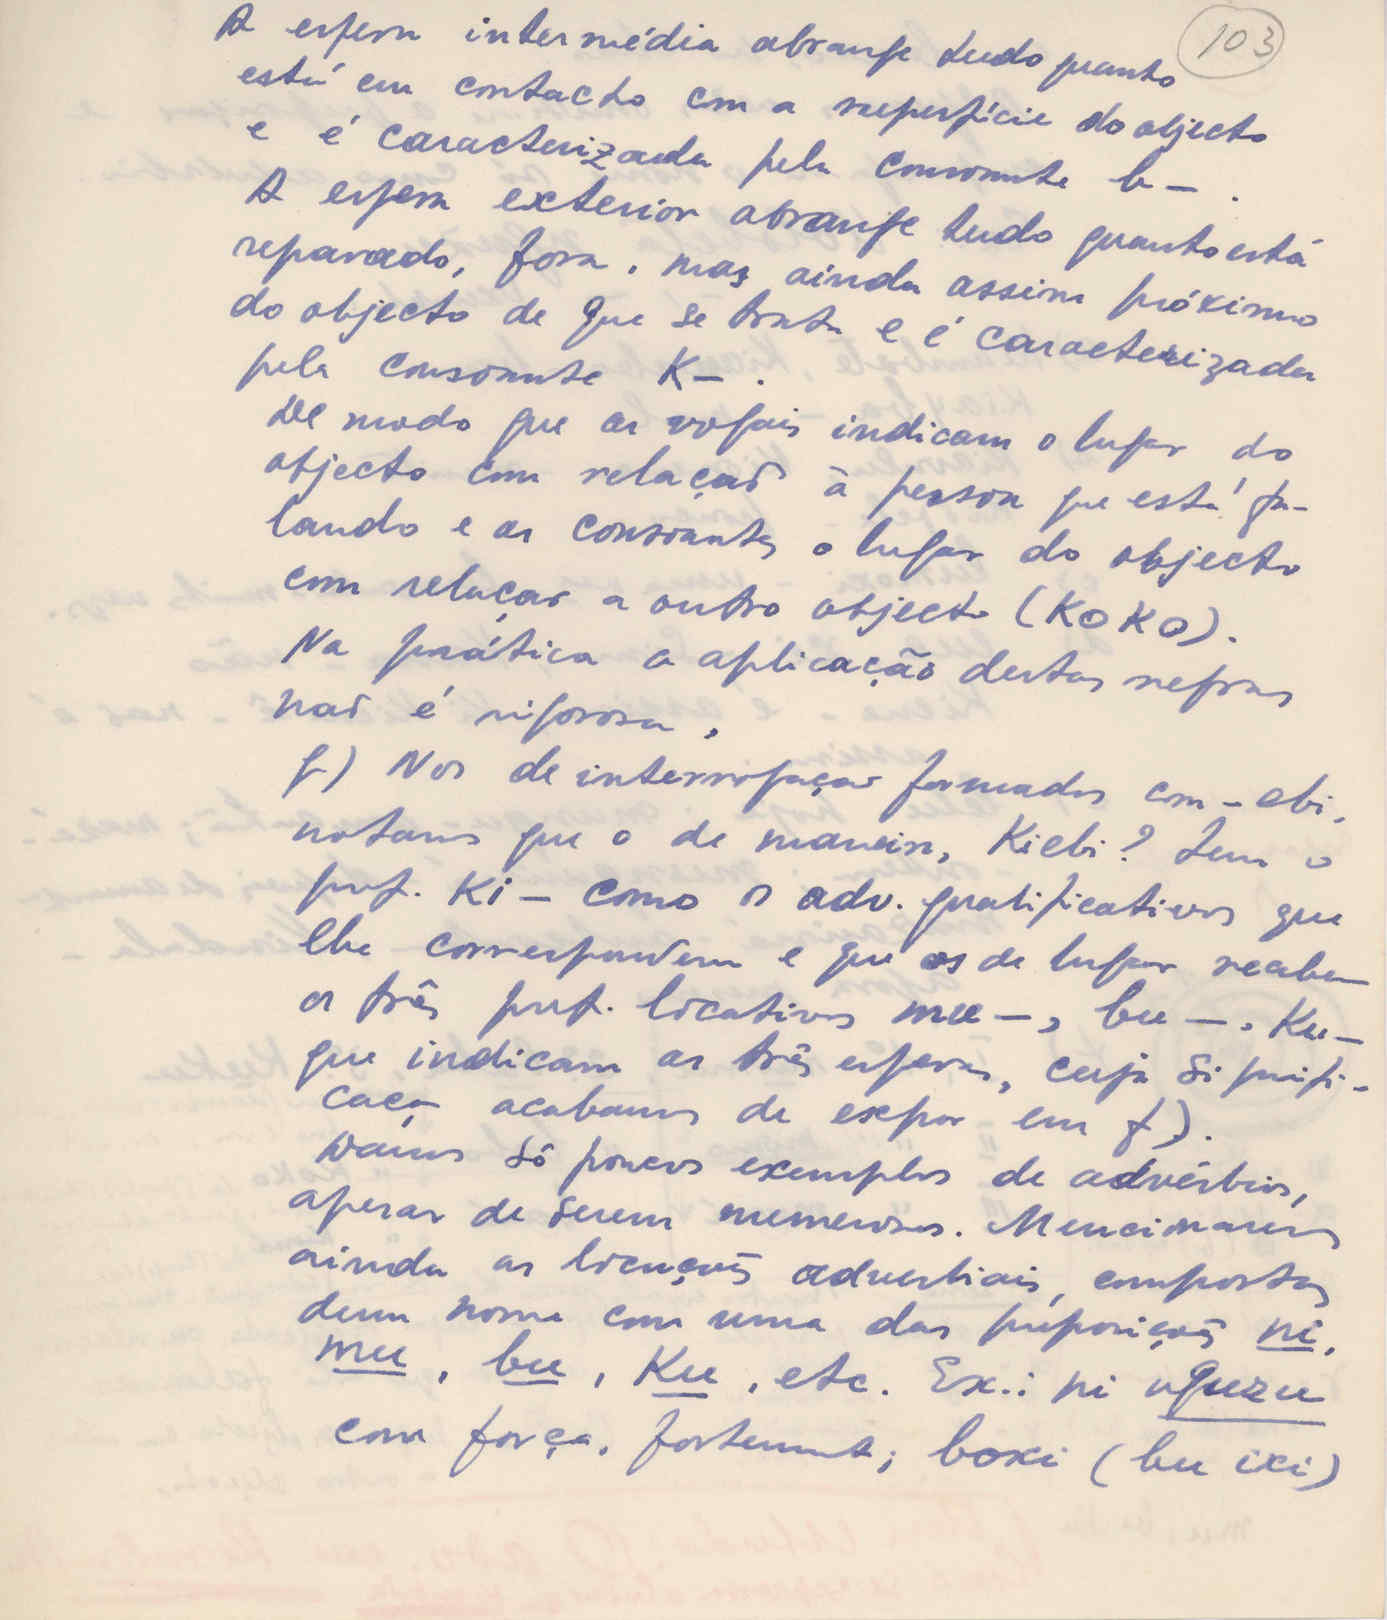 103
A esfera intermédia abrange tudo quanto
está em contacto com a superfície do objecto
e é caracterizada pela consoante b- .
A esfera exterior abrange tudo quanto está
separado, fora, mas ainda assim próximo
do objecto de que se trata e é caracterizada
pela consoante K- .
De modo que as vogais indicam o lugar do
objecto com relação à pessoa que está fa-
lando e as consoantes o lugar do objecto
com relação a outro objecto (KOKO).
Na prática a aplicação destas regras
não é rigorosa.
g) Nos de interrogação formados com -ebi,
notamos que o de maneira, Kiebi? tem o
pref. Ki- como os adv. qualificativos que
lhe correspondem e que os de lugar recebem
os três pref. locativos mu-, bu-, Ku-
que indicam as três esferas, cuja signifi-
cação acabamos de expor em f).
Damos só poucos exemplos de advérbios,
apesar de serem numerosos. Mencionaremos
ainda as locuções adverbiais, compostas
dum nome com uma das preposições ni,
mu, bu, Ku, etc. Ex.: ni uguzu
com força, fortemente; boxi (bu ixi)